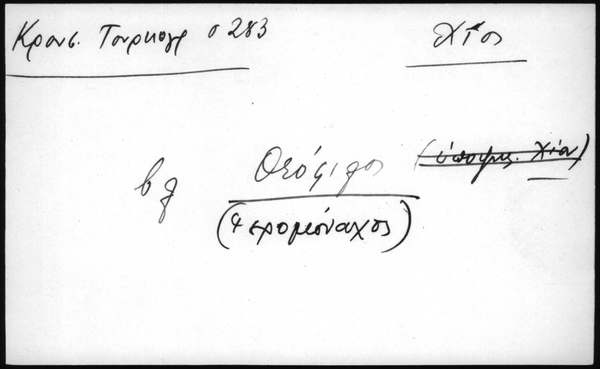 Κρουσ. Τουρκοκρ σ 283
Χίος
βλ Θεόφιλος (ὑποψηφ. Χίου)
(ἱερομόναχος)